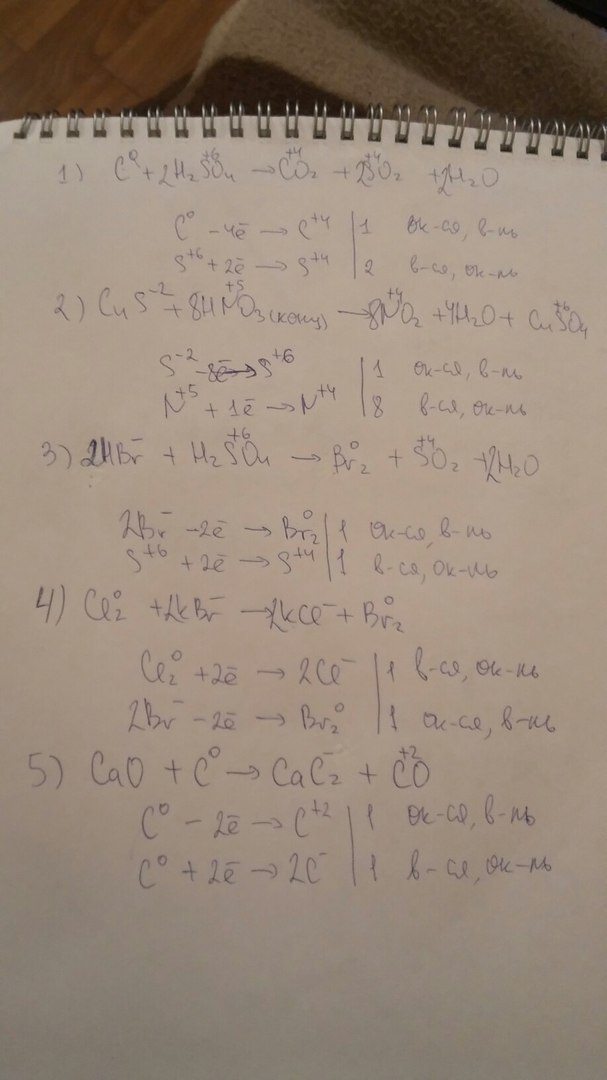 1) C⁰ + 2H₂S⁺⁶O₄ → C⁺⁴O₂ + 2S⁺⁴O₂ + 2H₂O
C⁰ - 4ē → C⁺⁴ | 1 ок-ся, в-ль
S⁺⁶ + 2ē → S⁺⁴ | 2 в-ся, ок-ль
2) CuS⁻² + 8HN⁺⁵O₃(конц) → 8N⁺⁴O₂ + 4H₂O + CuS⁺⁶O₄
S⁻² - 8ē → S⁺⁶ | 1 ок-ся, в-ль
N⁺⁵ + 1ē → N⁺⁴ | 8 в-ся, ок-ль
3) 2HBr⁻ + H₂S⁺⁶O₄ → Br₂⁰ + S⁺⁴O₂ + 2H₂O
2Br⁻ - 2ē → Br₂⁰ | 1 ок-ся, в-ль
S⁺⁶ + 2ē → S⁺⁴ | 1 в-ся, ок-ль
4) Cl₂⁰ + 2KBr⁻ → 2KCl⁻ + Br₂⁰
Cl₂⁰ + 2ē → 2Cl⁻ | 1 в-ся, ок-ль
2Br⁻ - 2ē → Br₂⁰ | 1 ок-ся, в-ль
5) CaO + C⁰ → CaC₂⁻ + C⁺²O
C⁰ - 2ē → C⁺² | 1 ок-ся, в-ль
C⁰ + 2ē → 2C⁻ | 1 в-ся, ок-ль